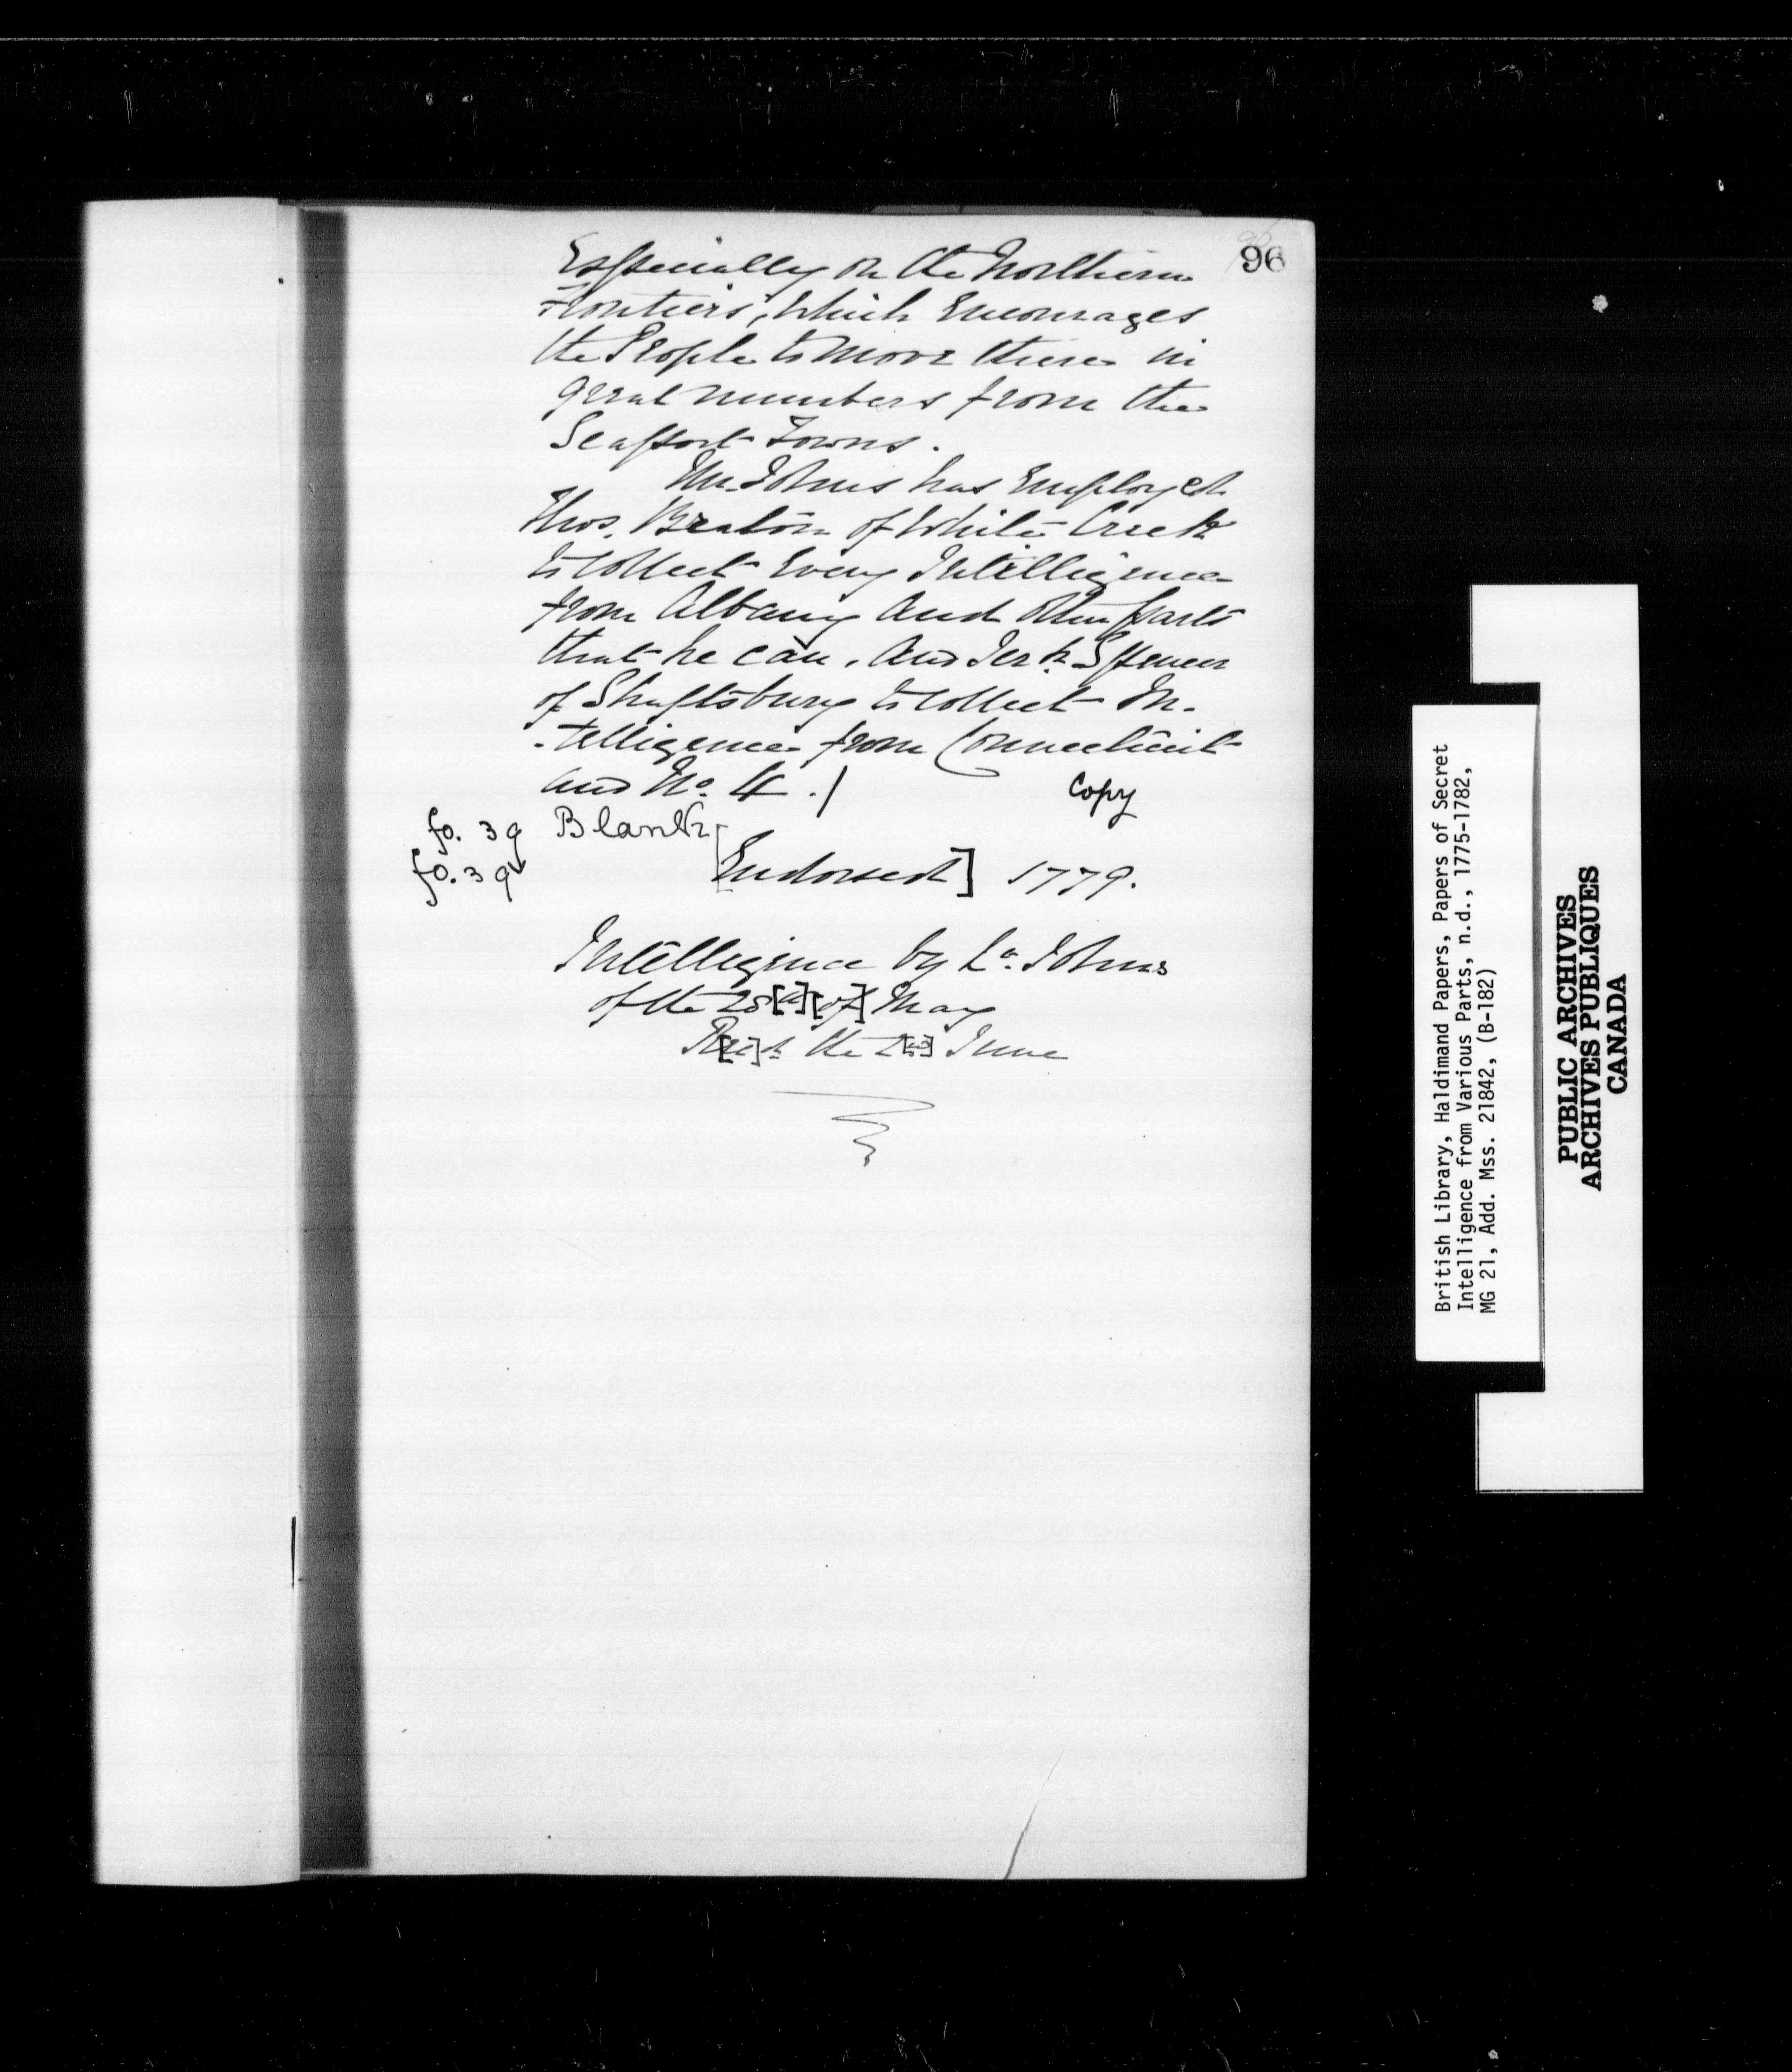 96
Especially on the Northern
Frontiers, which Encourages
the People to move there in
great numbers from the
Seaport Towns.
Mr. Johns has Employed
Thos. Beaton of White Creek
to collect Every Intelligence
from Albany and other parts
that he can. And Jerh. Spencer
of Shaftsbury to collect In-
-telligence from Connecticut
and No. 4 ./
Copy
fo. 39 Blank
fo. 39v [Endorsed] 1779.
Intelligence by Lt. Johns
of the 28[th] [of] May
R[ec]d. the 2[nd] June
British Library, Haldimand Papers, Papers of Secret
Intelligence from Various Parts, n.d., 1775-1782,
MG 21, Add. Mss. 21842, (B-182)
PUBLIC ARCHIVES
ARCHIVES PUBLIQUES
CANADA